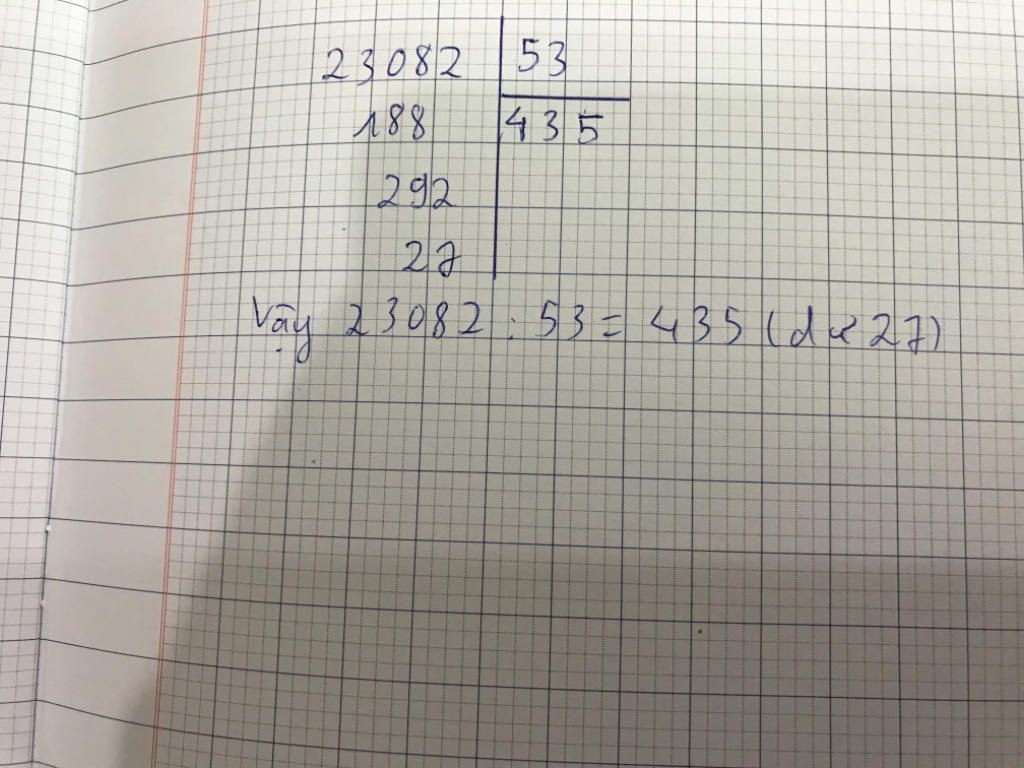 23082 53
188 435
292
27
Vậy 23082 : 53 = 435 (dư 27)